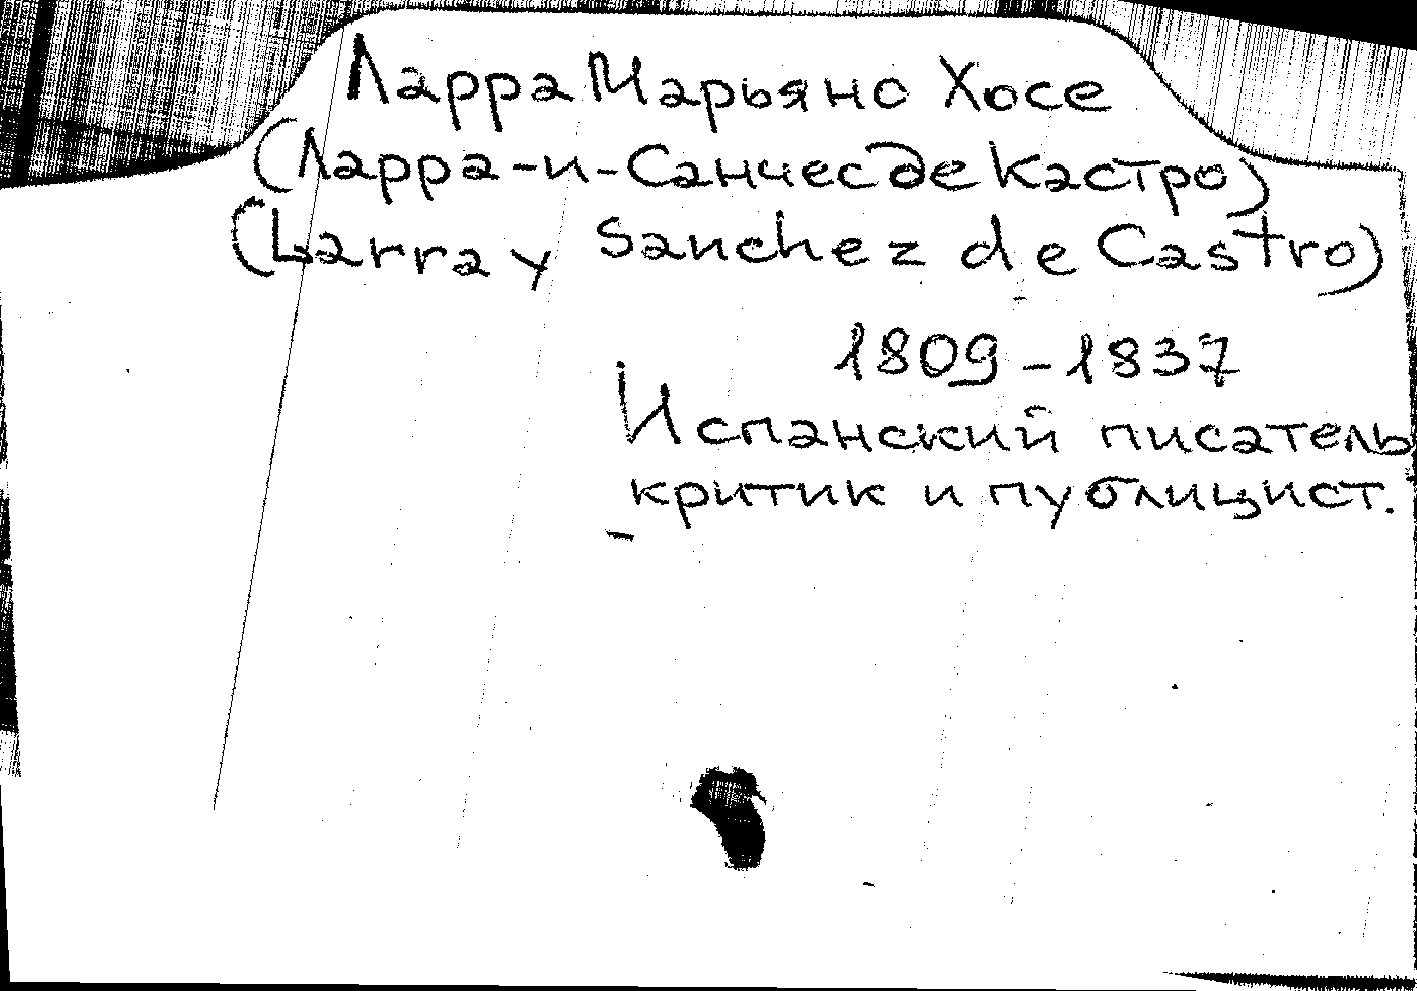 Ларра Марьяно Хосе
(Ларра-и-Санчес де Кастро)
(Larra y Sanchez de Castro)
1809-1837
Испанский писатель
критик и публицист.